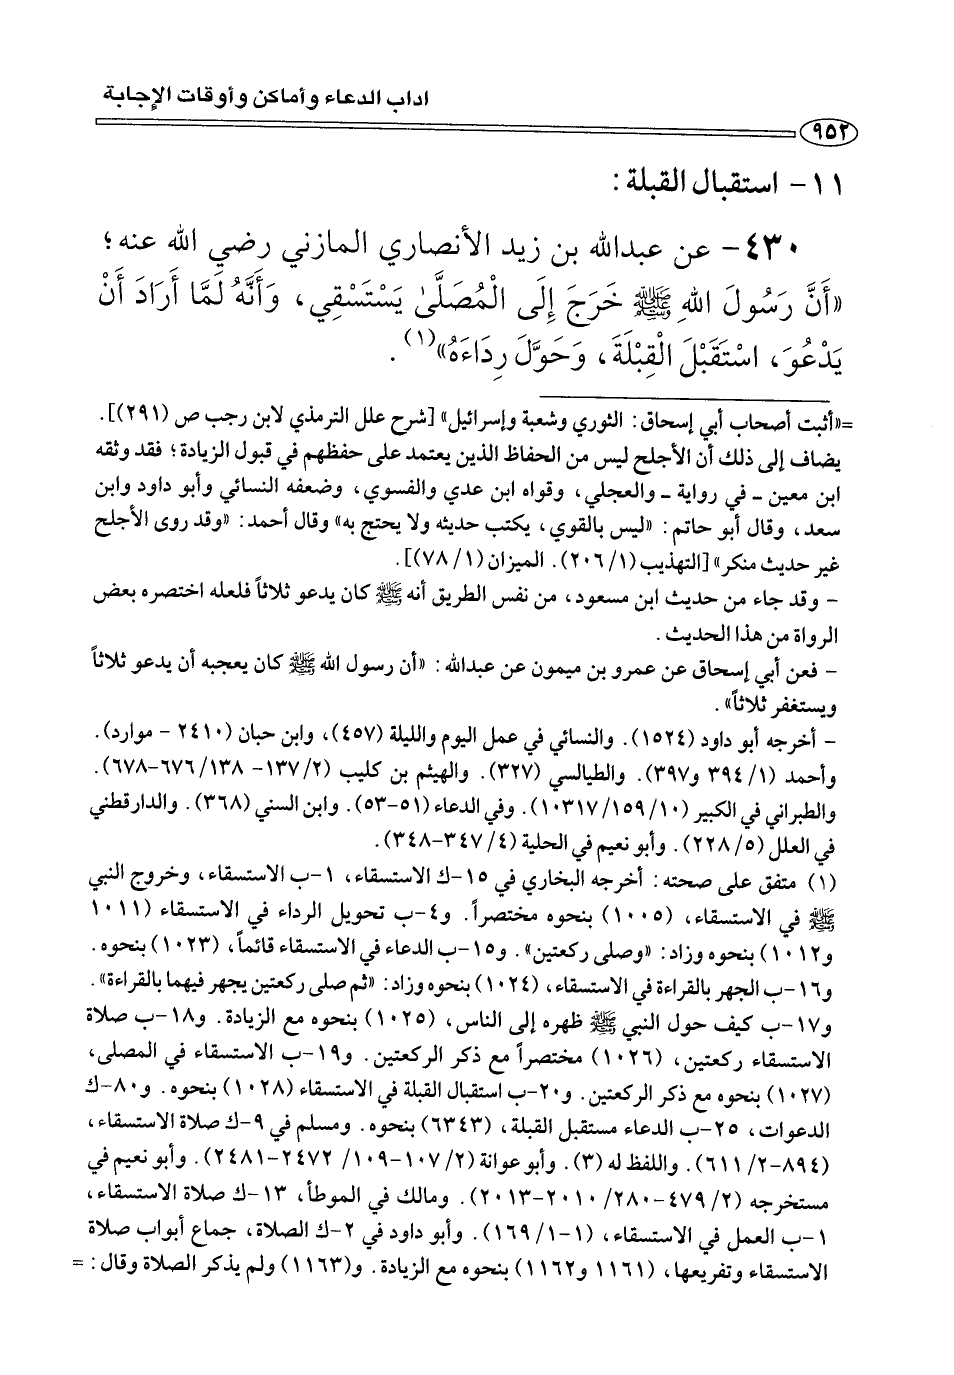 اداب الدعاء وأماكن وأوقات الإجابة
٩٥٢
١١- استقبال القبلة :
٤٣٠- عن عبدالله بن زيد الأنصاري المازني رضي الله عنه ؛
«أَنَّ رَسُولَ اللهِ ﷺ خَرَجَ إِلَى الْمُصَلَّىٰ يَسْتَسْقِي، وَأَنَّهُ لَمَّا أَرَادَ أَنْ
يَدْعُوَ، اسْتَقْبَلَ الْقِبْلَةَ، وَحَوَّلَ رِدَاءَهُ»(١) .
=«أثبت أصحاب أبي إسحاق: الثوري وشعبة وإسرائيل» [شرح علل الترمذي لابن رجب ص (٢٩١)].
يضاف إلى ذلك أن الأجلح ليس من الحفاظ الذين يعتمد على حفظهم في قبول الزيادة؛ فقد وثقه
ابن معين - في رواية - والعجلي، وقواه ابن عدي والفسوي، وضعفه النسائي وأبو داود وابن
سعد، وقال أبو حاتم: «ليس بالقوي، يكتب حديثه ولا يحتج به» وقال أحمد: «وقد روى الأجلح
غير حديث منكر» [التهذيب (١/ ٢٠٦). الميزان (١/ ٧٨)].
- وقد جاء من حديث ابن مسعود، من نفس الطريق أنه ﷺ كان يدعو ثلاثاً فلعله اختصره بعض
الرواة من هذا الحديث.
- فعن أبي إسحاق عن عمرو بن ميمون عن عبدالله: «أن رسول الله ﷺ كان يعجبه أن يدعو ثلاثاً
ويستغفر ثلاثاً».
- أخرجه أبو داود (١٥٢٤). والنسائي في عمل اليوم والليلة (٤٥٧)، وابن حبان (٢٤١٠ - موارد).
وأحمد (١/ ٣٩٤ و٣٩٧). والطيالسي (٣٢٧). والهيثم بن كليب (٢/ ١٣٧- ١٣٨/ ٦٧٦-٦٧٨).
والطبراني في الكبير (١٠/ ١٥٩/ ١٠٣١٧). وفي الدعاء (٥١-٥٣). وابن السني (٣٦٨). والدارقطني
في العلل (٥/ ٢٢٨). وأبو نعيم في الحلية (٤/ ٣٤٧-٣٤٨).
(١) متفق على صحته: أخرجه البخاري في ١٥-ك الاستسقاء، ١-ب الاستسقاء، وخروج النبي
ﷺ في الاستسقاء، (١٠٠٥) بنحوه مختصراً. و٤-ب تحويل الرداء في الاستسقاء (١٠١١
و١٠١٢) بنحوه وزاد: «وصلى ركعتين». و١٥-ب الدعاء في الاستسقاء قائماً، (١٠٢٣) بنحوه.
و١٦-ب الجهر بالقراءة في الاستسقاء، (١٠٢٤) بنحوه وزاد: «ثم صلى ركعتين يجهر فيهما بالقراءة».
و١٧-ب كيف حول النبي ﷺ ظهره إلى الناس، (١٠٢٥) بنحوه مع الزيادة. و١٨-ب صلاة
الاستسقاء ركعتين، (١٠٢٦) مختصراً مع ذكر الركعتين. و١٩-ب الاستسقاء في المصلى،
(١٠٢٧) بنحوه مع ذكر الركعتين. و٢٠-ب استقبال القبلة في الاستسقاء (١٠٢٨) بنحوه. و٨٠-ك
الدعوات، ٢٥-ب الدعاء مستقبل القبلة، (٦٣٤٣) بنحوه. ومسلم في ٩-ك صلاة الاستسقاء،
(٨٩٤-٢/ ٦١١). واللفظ له (٣). وأبو عوانة (٢/ ١٠٧-١٠٩/ ٢٤٧٢-٢٤٨١). وأبو نعيم في
مستخرجه (٢/ ٤٧٩-٢٨٠/ ٢٠١٠-٢٠١٣). ومالك في الموطأ، ١٣-ك صلاة الاستسقاء،
١-ب العمل في الاستسقاء، (١-١/ ١٦٩). وأبو داود في ٢-ك الصلاة، جماع أبواب صلاة
الاستسقاء وتفريعها، (١١٦١ و١١٦٢) بنحوه مع الزيادة. و(١١٦٣) ولم يذكر الصلاة وقال: =